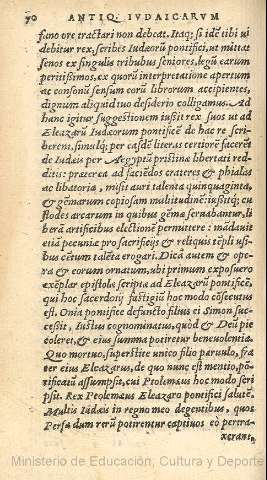 90 ANTIQ. IVDAICARVM
fano ore tractari non debeat. Itaq; si idē tibi ui
debitur rex, scribes Iudæorū pontifici, ut mittat
senos ex singulis tribubus seniores, legū earum
peritissimos, ex quorū interpretatione apertum
ac consonū sensum corū librorum accipientes,
dignum aliquid tuo desiderio colligamus. Ad
hanc igitur suggestionem iußit rex suos ut ad
Eleazarū Iudæorum pontificē de hac re scri-
berent, simulq; per easdē literas certiorē facerēt
de Iudæis per Aegyptū pristinæ libertati red-
ditis: præterea ad faciēdos crateres & phialas
ac libatoria, misit auri talenta quinquaginta,
& gēmarum copiosam multitudinē: iußitq; cu
stodes arcarum in quibus gēmæ seruabantur, li
berā artificibus electionē permittere: mādauit
etiā pecuniæ pro sacrificijs & reliquis tēpli usi-
bus cētum talēta erogari. Dicā autem & ope-
ra & eorum ornatum, ubi primum exposuero
exēplar epistolæ scriptæ ad Eleazarū pontificē,
qui hoc sacerdotij fastigiū hoc modo cōsecutus
est. Onia pontifice defuncto filius ei Simon suc-
ceßit, Iustus cognominatus, quòd & Deū pie
coleret, & eius summa potiretur beneuolentia.
Quo mortuo, superstite unico filio paruulo, fra
ter eius Eleazarus, de quo nunc est mentio, pō-
tificatū assumpsit, cui Ptolemæus hoc modo scri
psit. Rex Ptolemæus Eleazaro pontifici salutē.
Multis Iudæis in regno meo degentibus, quos
Persæ dum rerū potirentur captiuos eò pertra-
xerant,
Ministerio de Educación, Cultura y Deporte